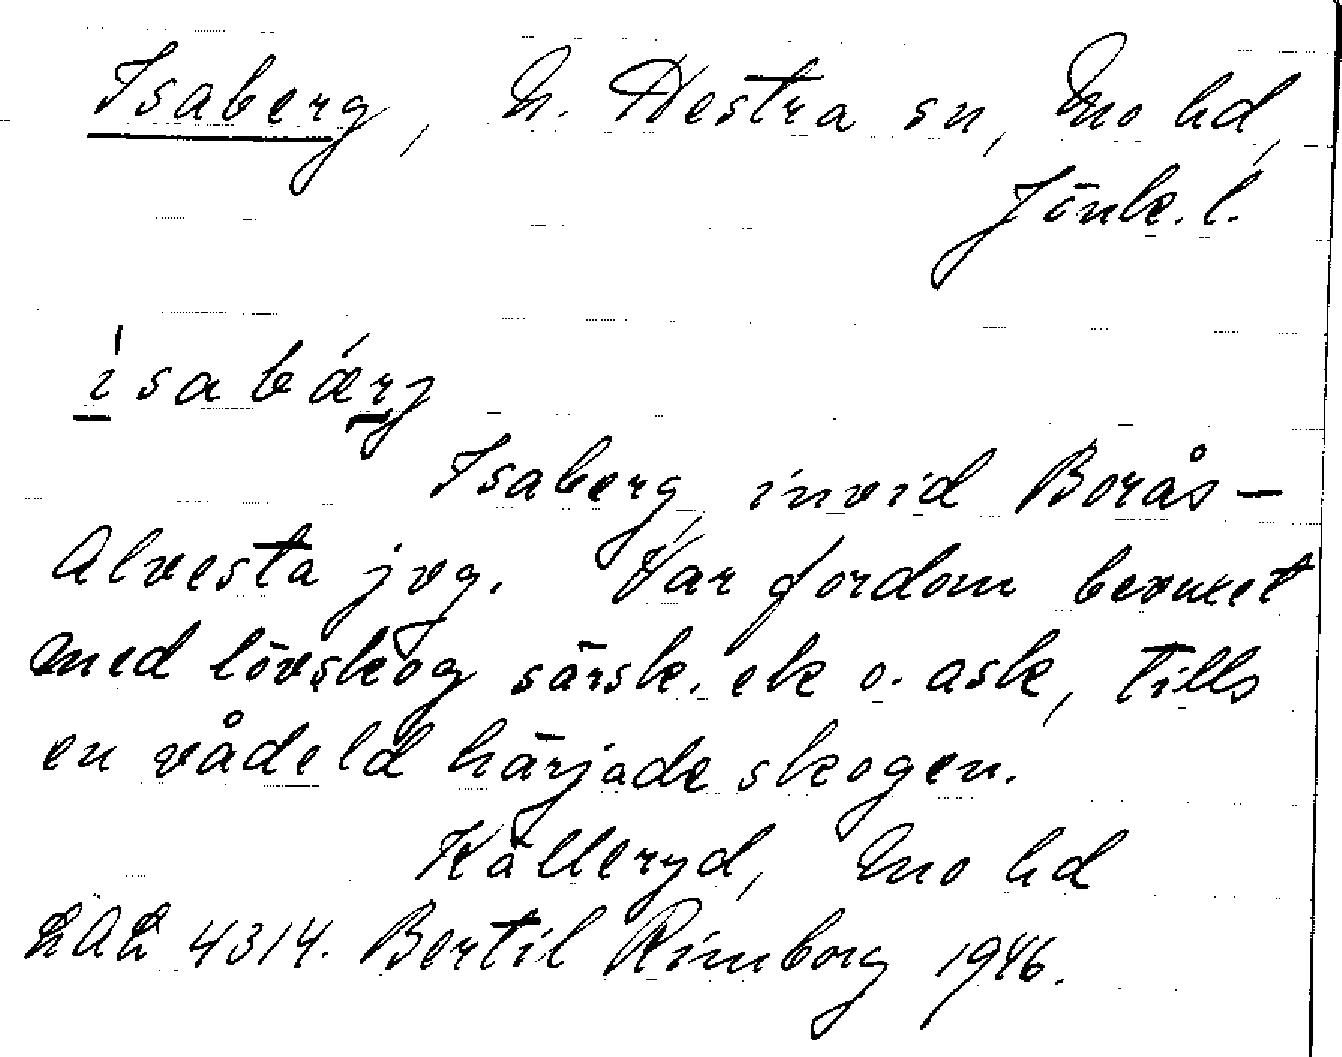 Isaberg, N. Hestra sn, Mo hd,
Jönk. l.
isabærj
Isaberg, invid Borås–
Alvesta jvg. Var fordom bevuxet
med lövskog särsk. ek o. ask, tills
en vådeld härjade skogen.
Kålleryd, Mo hd
4314. Bertil Rimborg 1946.